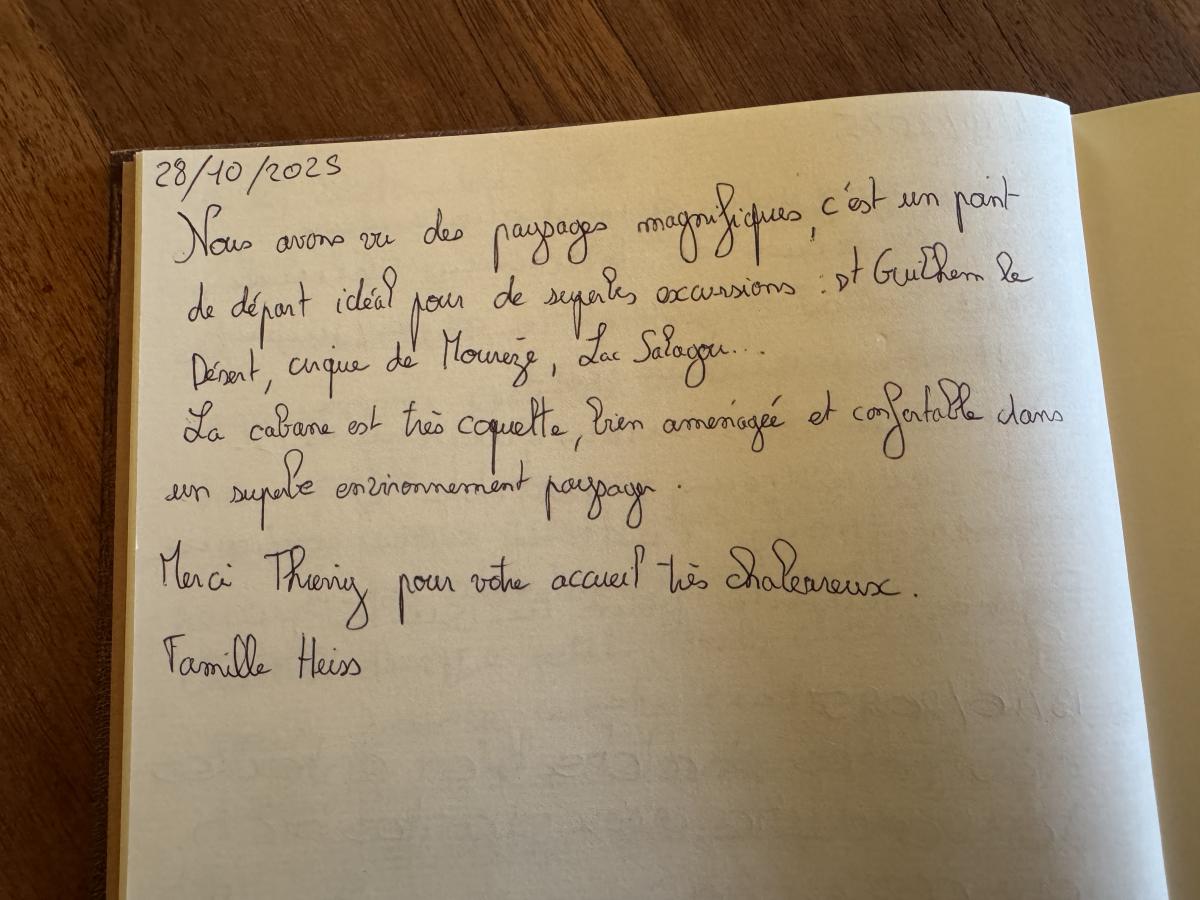 28/10/2025
Nous avons vu des paysages magnifiques, c'est un point
de départ idéal pour de superbes excursions : st Guilhem le
Désert, cirque de Mourèze, Lac Salagou...
La cabane est très coquette, bien aménagée et confortable dans
un superbe environnement paysager.
Merci Thierry pour votre accueil très chaleureux.
Famille Heiss